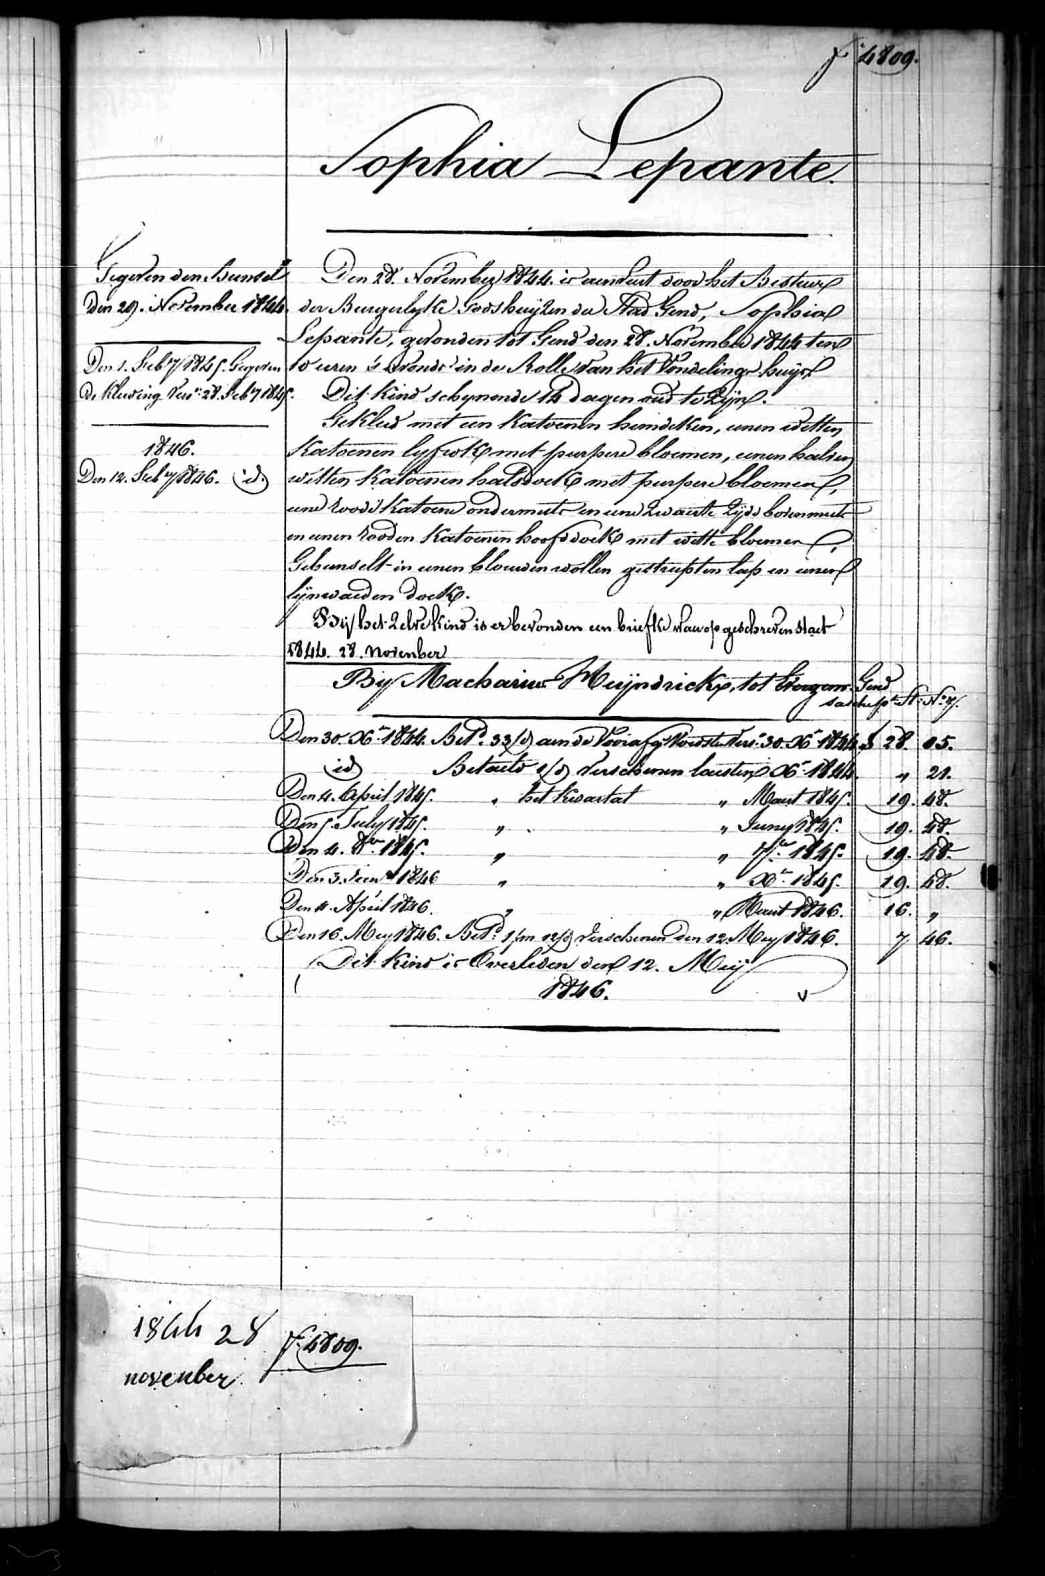 f° 4809.
Sophia Lepante.
Gegeven den Bunsel
Den 29. November 1844.
Den 1. Feb.y 1845. Gegeven
de Kleeding Vers: 28. Feb.y 1845.
1846.
Den 12. Feb.y 1846. id.
Den 28. November 1844. is aenveert door het Bestuur
der Burgerlyke Godshuijzen der Stad Gend, Sophia
Lepante, gevonden tot Gend den 28. November 1844 ten
10 uren 's avonds in de Rolle van het Vondelinge huijs
Dit kind schynende 14 dagen oud te Zijn.
Gekleed met een Katoenen hemdeken, eenen witten
Katoenen lyfrok met purpere bloemen, eenen halven
witten Katoenen halsdoek met purpere bloemen,
eene roode Katoene ondermuts en eene Zwarte Zijde bovenmuts
en eenen rooden Katoenen hoofddoek met witte bloemen,
Gebunselt in eenen blauwen wollen gestrepten lap en eenen
lijnwaeden doek.
Bij het Zelve Kind is er bevonden een briefke waerop geschreven staet
1844. 28. november
Bij Macharius Huijndrickx, tot Gend
Den 30. Xb.r 1844. Bet.d 33/d aen de Voorafg. Voedster Vers: 30. Xb.r 1844. f 28. 05.
id Betaeld 1/d Verschenen laesten Xb.r 1844. „ 21.
Den 4. April 1845. „ het Kwartael „ Maert 1845. 19. 48.
Den 5. July 1845. „ „ Juny 1845. 19. 48.
Den 4. 8.br 1845. „ „ 7.br 1845. 19. 48.
Den 3. Jan. 1846 „ „ Xb.r 1845. 19. 48.
Den 4. April 1846. „ „ Maert 1846. 16. „
Den 16. Mey 1846. Bet.d 1/m 12/d Verschenen den 12. Mey 1846. 7 46.
Dit Kind is Overleden den 12. Meij
1846.
1844 28
november
f° 4809.